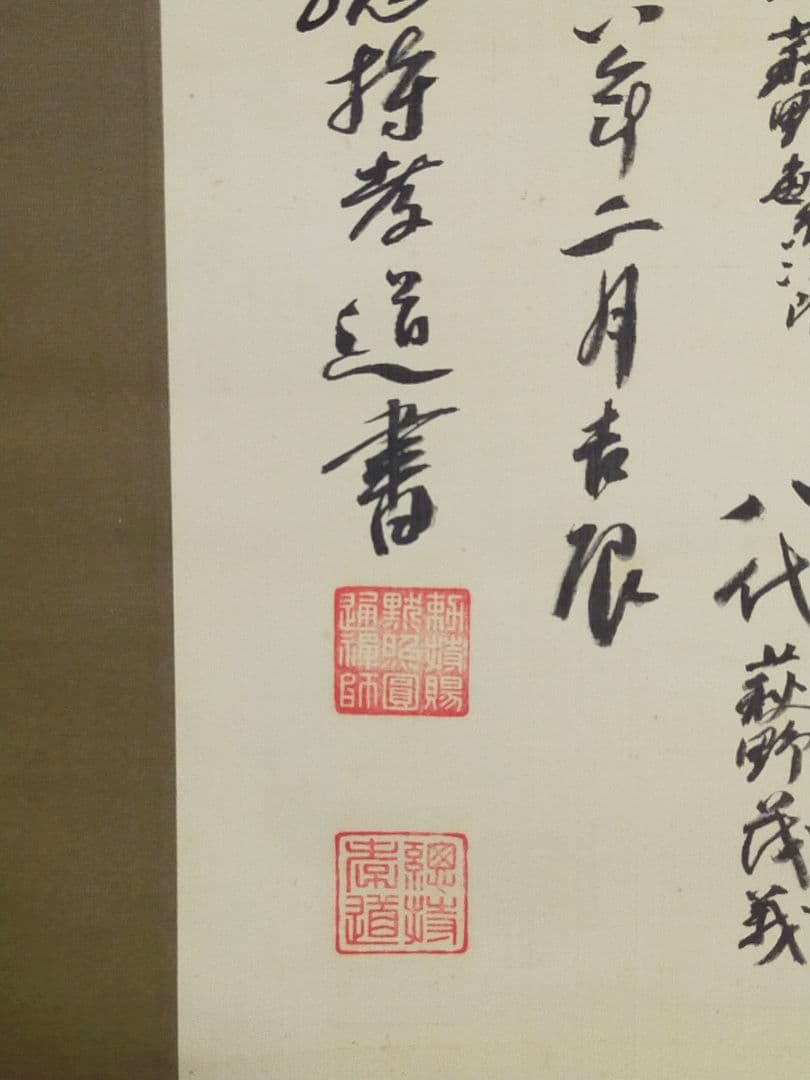 萩野
八代 萩野茂義
八年二月吉辰
持孝道書
勅特賜
默照圓
通禪師
總持
孝道